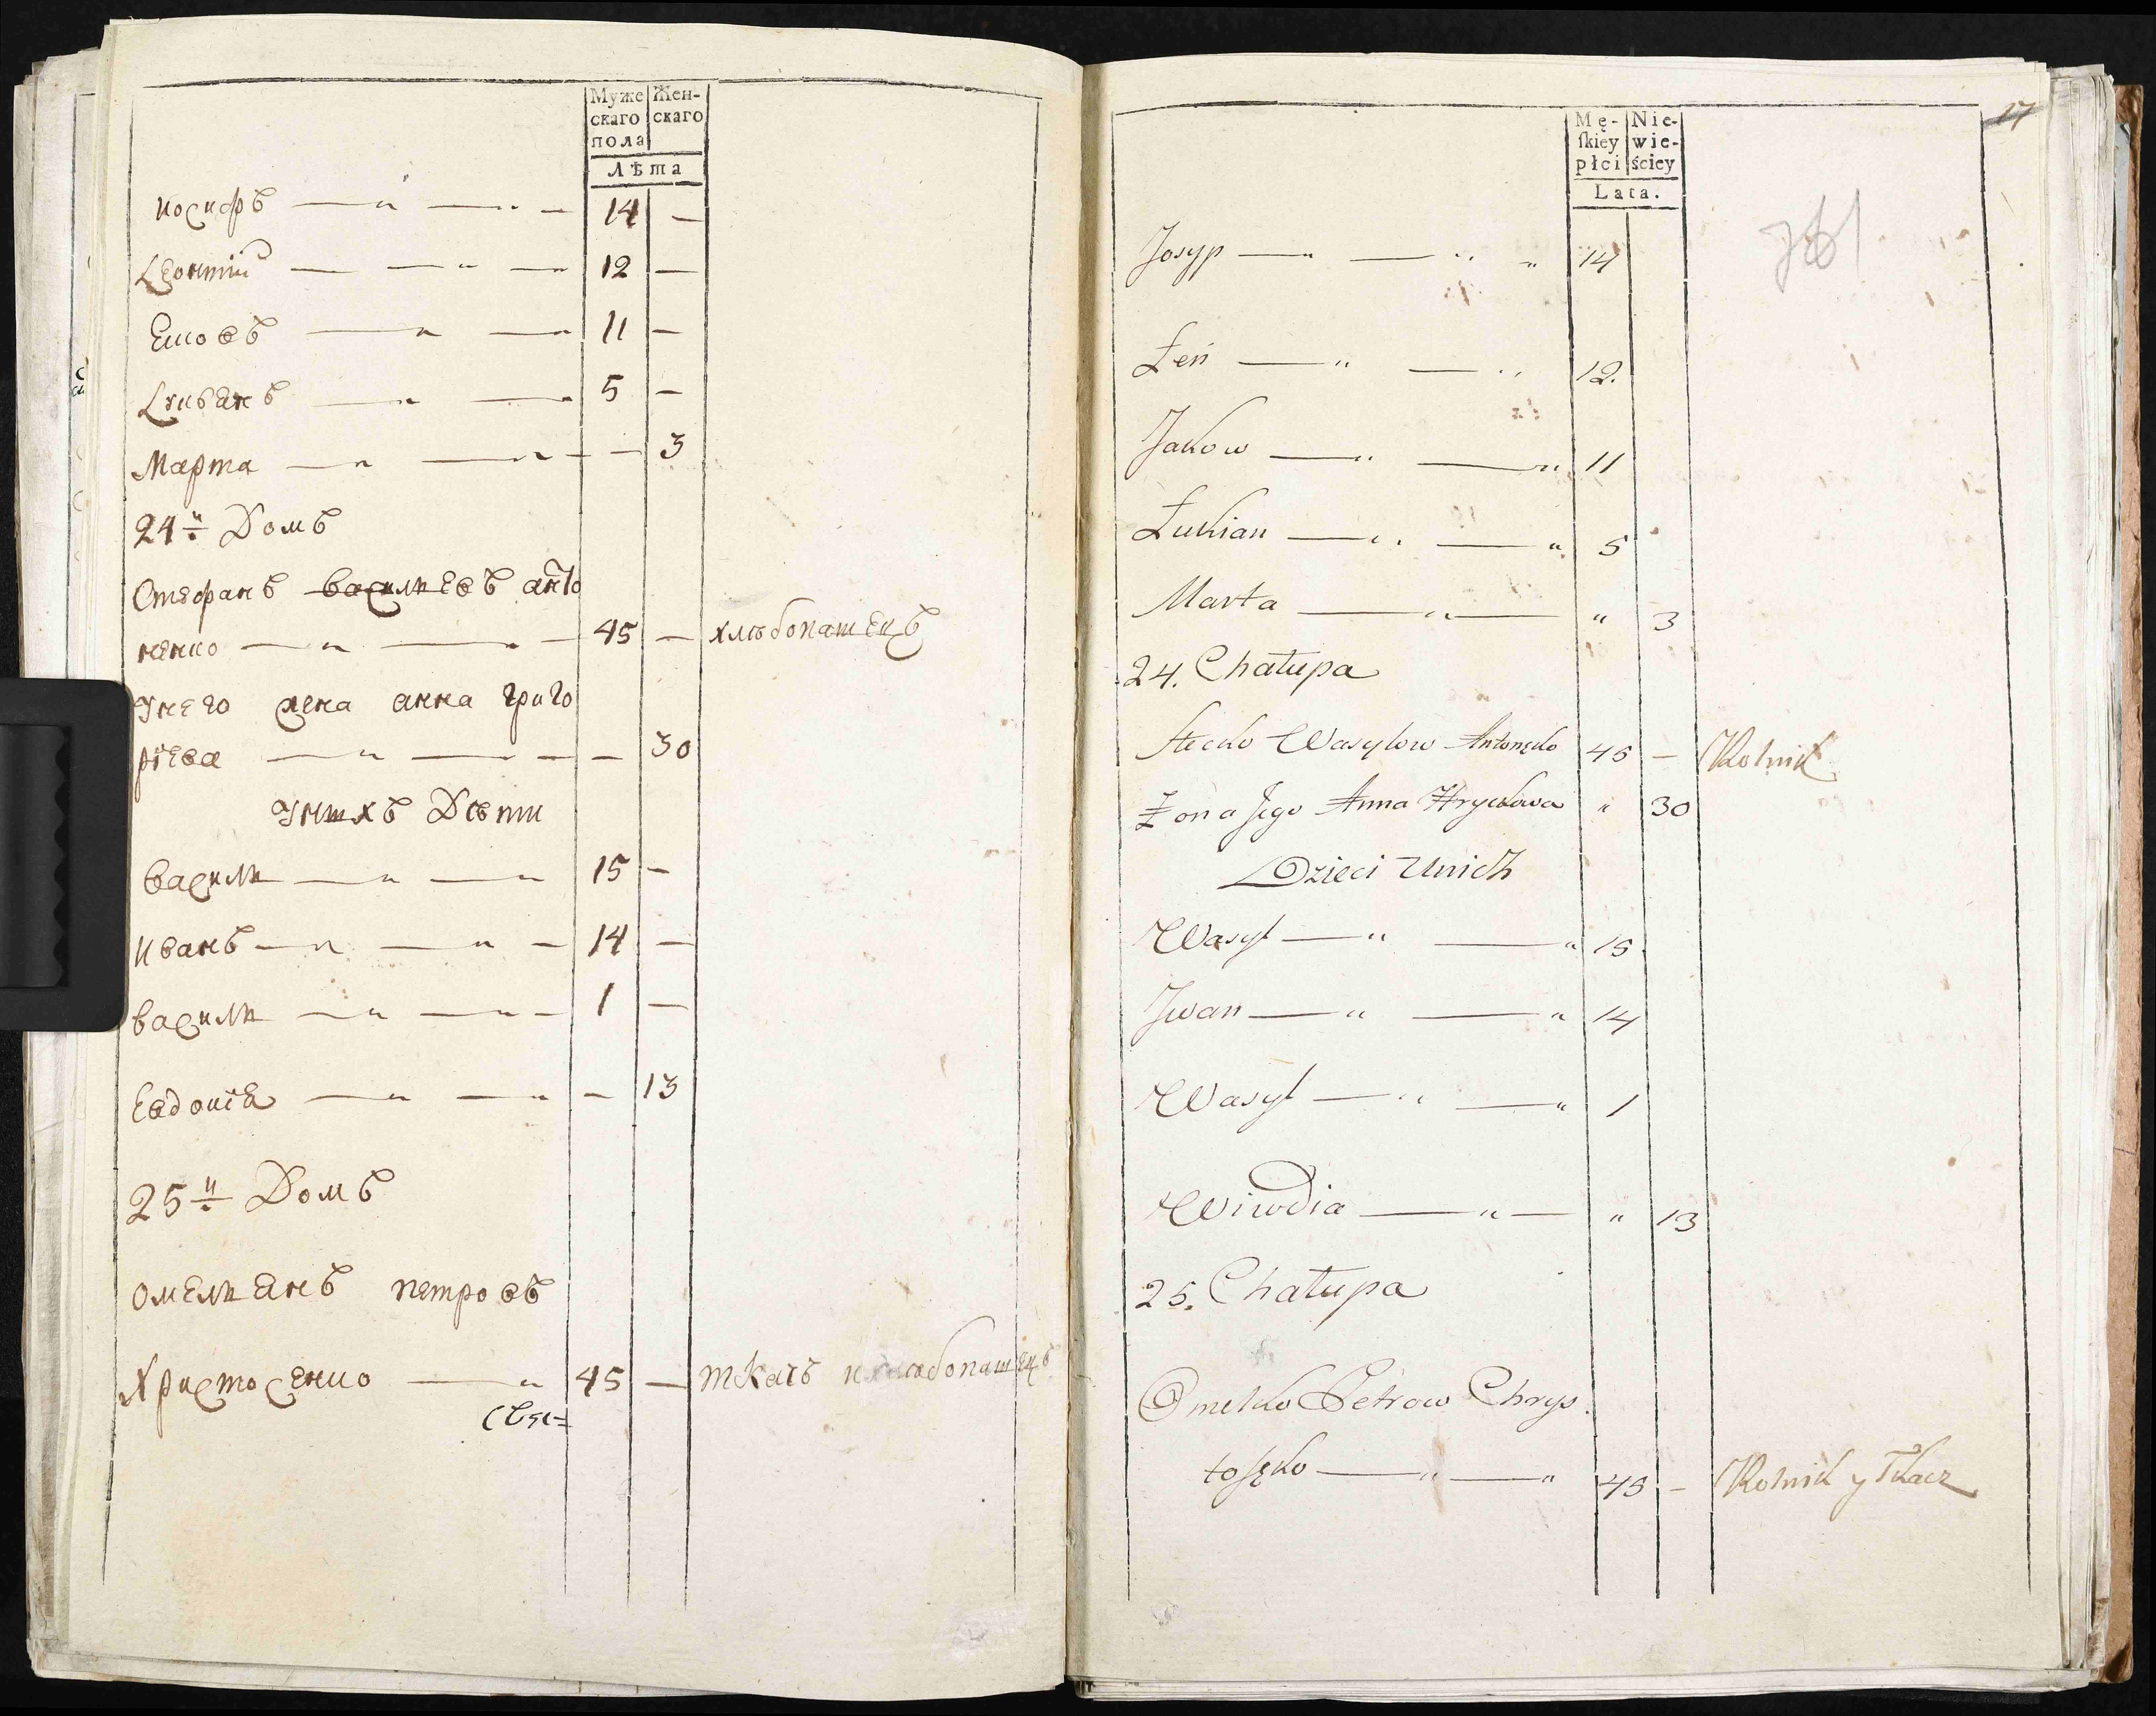 Муже
скаго
пола
Жен-
скаго
Лѣта
иосифъ — " — " — 14 —
Леонтіи — — " — 12 —
Ековъ — " — 11 —
Лукъянъ — " — 5 —
Марта — " — " — — 3
24й Домъ
Стефанъ василиевъ анто
ненко — " — " — 45 — хлѣбопашецъ
Унего жена анна григо
риева — " — — — 30
Унихъ Дѣти
василь — " — " 15 —
иванъ — " — " — 14 —
василь — " — " — 1 —
Евдокіа — " — " — 13
25й Домъ
омельянъ петровъ
Христосенко — " 45 — ткачъ и хлѣбопашецъ
Mę-
ſkiey
płci
Nie-
wie-
ściey
Lata.
17
Josyp — " — " " 14
Łeń — " — " 12.
Jakow — " — " 11
Łukian — " — " 5
Marta — " — " 3
24. Chałupa
Stecko Wasylow Antonęko 45 — Rolnik
Żona Jego Anna Hryckowa " 30
Dzieci Unich
Wasyl — " — " 15
Jwan — " — " 14
Wasyl — " — " 1
Wiwdia — " — " 13
25. Chałupa
Omelko Petrow Chrys
tosęko — " — " 45 — Rolnik y Tkacz